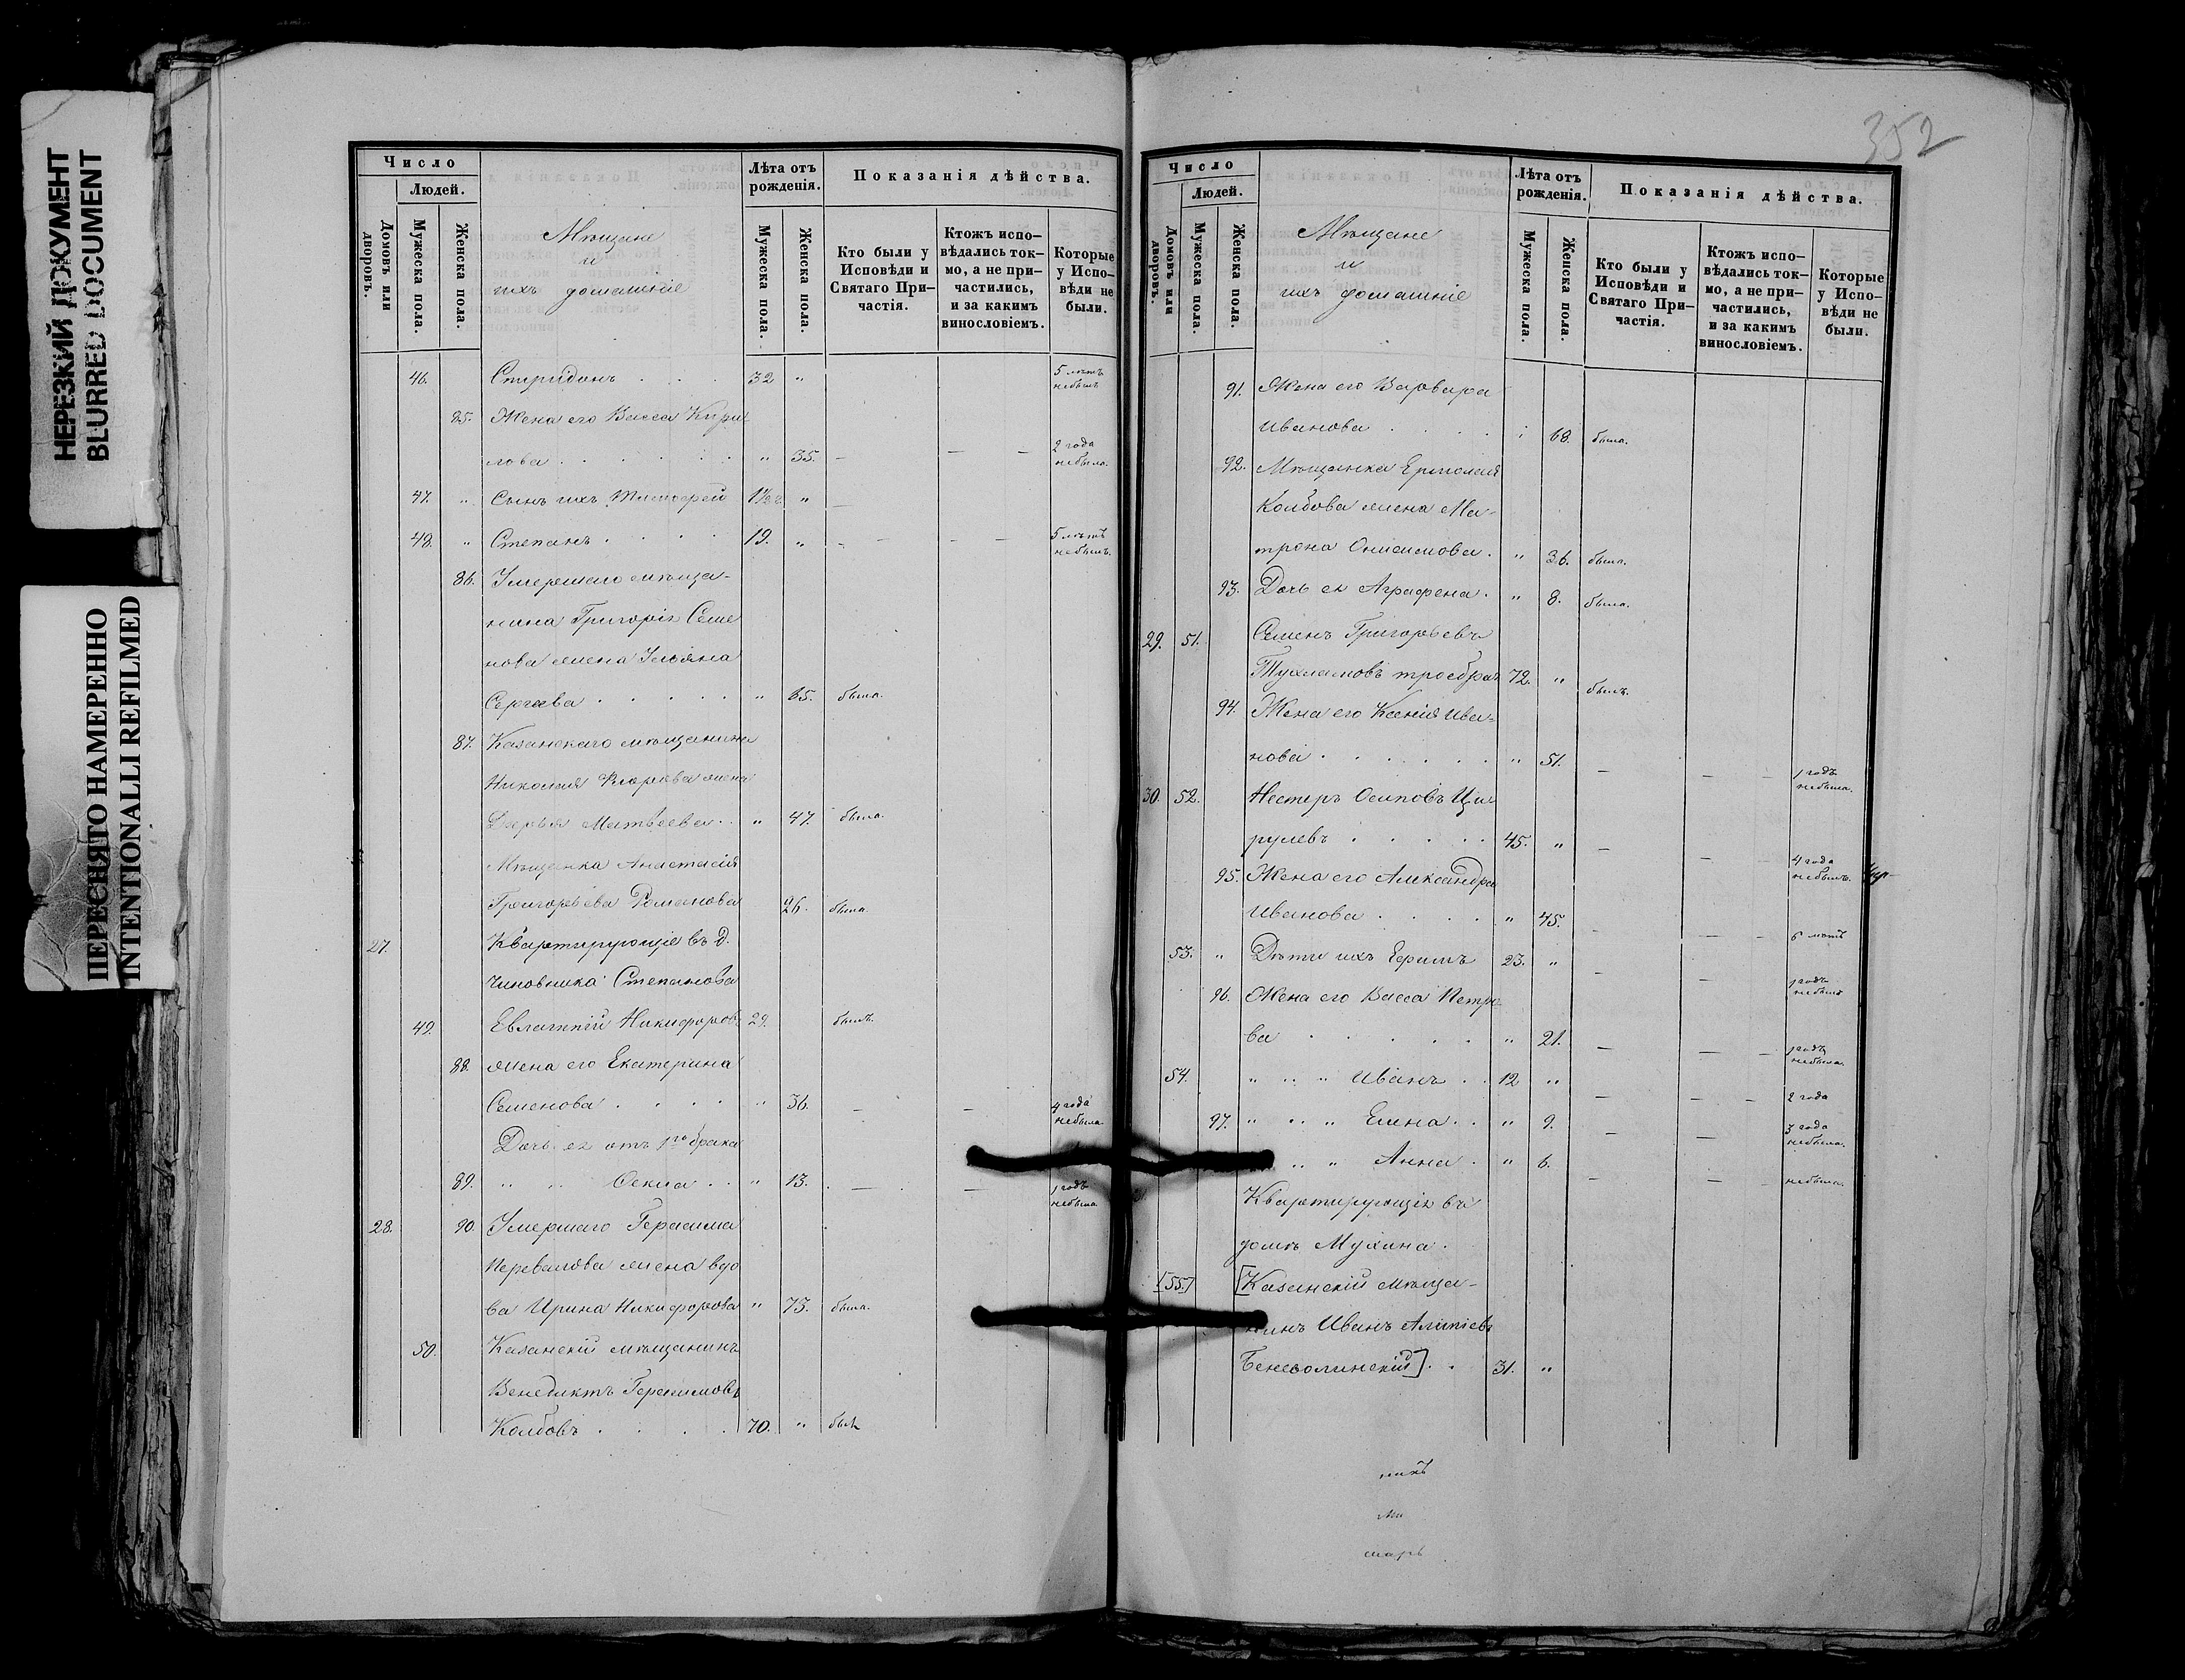 НЕРЕЗКИЙ ДОКУМЕНТ
BLURRED DOCUMENT
ПЕРЕСНЯТО НАМЕРЕННО
INTENTIONALLI REFILMED
Число
Людей.
Домовъ или дворовъ.
Мужеска пола.
Женска пола.
Мѣщане
и
ихъ домашніе
Лѣта отъ рожденія.
Мужеска пола.
Женска пола.
Показанія дѣйства.
Кто были у Исповѣди и Святаго Причастія.
Ктожъ исповѣдались токмо, а не причастились, и за какимъ винословіемъ.
Которые у Исповѣди не были.
46. Спиридонъ . . . 32 „ 5 лѣтъ небылъ
85. Жена его Васса Кири
лова . . . . . „ 35. — — — 2 года небыла.
47. „ Сынъ ихъ Тимофей 1½ г „ —
48. „ Степанъ . . . . 19. „ - - - - 5 лѣтъ небылъ.
86. Умершаго мѣща-
нина Григорія Семе
нова жена Ульяна
Сергѣева . . . . . „ 65. была.
87. Казанскаго мѣщанина
Николая Флорова жена
Дарья Матвѣева . . „ 47. была.
Мѣщанка Анастасія
Григорьева Романова 26. была.
27. Квартирующіе въ д.
чиновника Степанова
49. Евлампій Никифоровъ 29. былъ.
88. жена его Екатерина
Семенова . . . . „ 36. — — 4 года небыла.
Дочь ея отъ 1го брака
89. „ „ Фекла . . „ 13. . — . — 1 годъ небыла
28. 90. Умершаго Герасима
Перевалова жена вдо
ва Ирина Никифорова „ 73. была.
50. Казанскій мѣщанинъ
Венедиктъ Герасимовъ
Колбовъ . . . . 70. „ былъ
352
Число
Людей.
Домовъ или дворовъ.
Мужеска пола.
Женска пола.
Мѣщане
и
ихъ домашніе
Лѣта отъ рожденія.
Мужеска пола.
Женска пола.
Показанія дѣйства.
Кто были у Исповѣди и Святаго Причастія.
Ктожъ исповѣдались токмо, а не причастились, и за какимъ винословіемъ.
Которые у Исповѣди не были.
91. Жена его Варвара
Иванова . . . . „ 68. была.
92. Мѣщанка Ермолая
Колбова жена Ма-
трона Онисимова . „ 36. была.
93. Дочь ея Аграфена . „ 8. была.
29. 51. Семенъ Григорьевъ
троебрач 72. „ былъ.
94. Жена его Ксенія Ива-
нова . . . . . . „ 51. — — — 1 годъ небыла.
30. 52. Нестеръ Осиповъ Ци-
рулевъ . . . . . 45. „ — — 4 года небылъ.
95. Жена его Александра
Иванова . . . . „ 45. - — - 6 лѣтъ
53. „ Дѣти ихъ Ефимъ 23. „ - — 1 годъ небылъ
96. Жена его Васса Петро-
ва . . . . . „ 21. — — — 1 годъ небыла.
54. „ „ „ Иванъ . . 12 „ — — - 2 года
97. „ „ „ Елена . . „ 9. — — 3 года небыла.
„ „ Анна . „ 6. - — - небыла.
Квартирующіе въ
домѣ Мухина.
[55] [Казанскій мѣща-
нинъ Иванъ Алипіевъ
Беневолинскій] . . 31. „
нихъ
ми